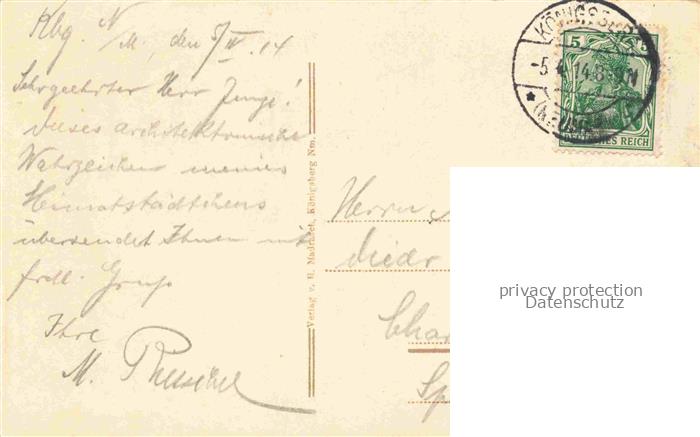 Kbg. N/M., den 5/IV. 14
Sehrgeehrter Herr Junge!
Dieses architektonische
Wahrzeichen meines
Heimatstädtchens
übersendet Ihnen mit
frdl. Gruß
Ihre
M.
Verlag v. H. Madrasch, Königsberg Nm.
KÖNIGSBERG
-5.4.14.8-9N
*(NEUM
5 5
DEUTSCHES REICH
Herrn
Char
Sp
privacy protection
Datenschutz